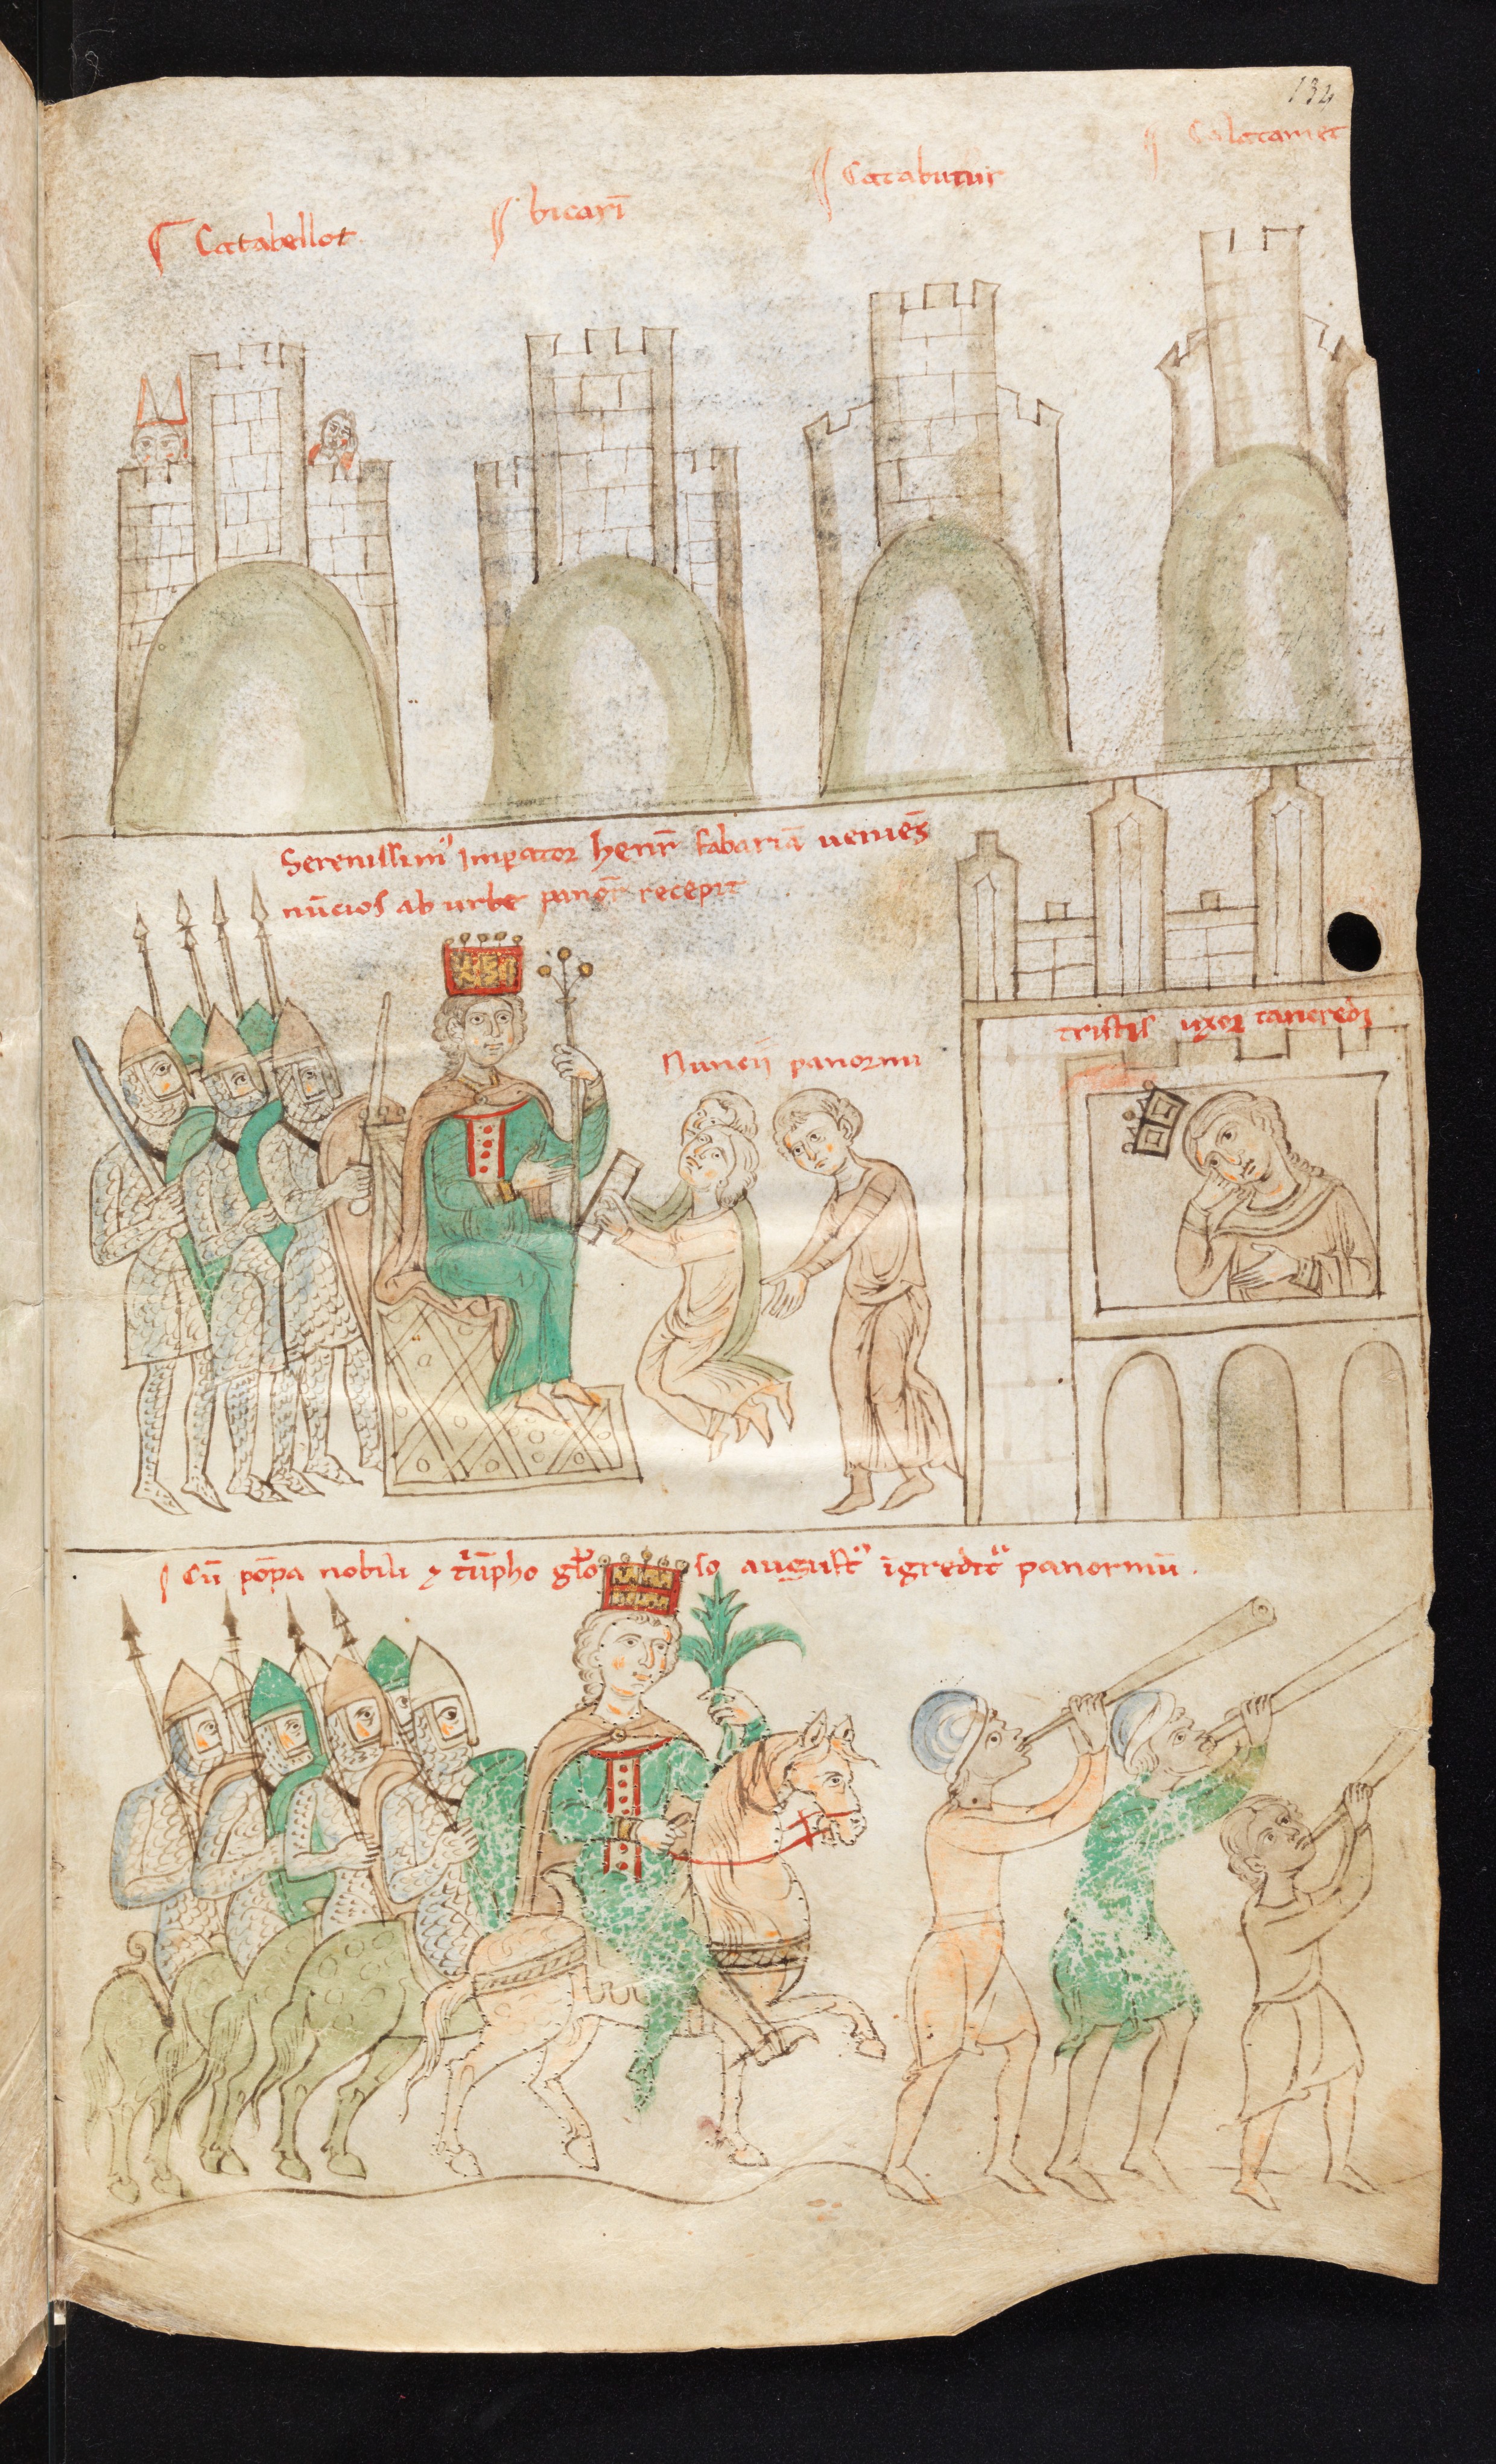 134
Catabellot
bicarī
Catabutur
Calatamet
Serenissim᾿ Imꝑator henr̄ fabariā ueniēs
nūcios ab urbe panor̄ recepit
Nuncii panormi
tristis uxor tancredi
Cū pōpa nobili ⁊ tⁱūpho glo so august᾿ īgredit᾿ panormū.